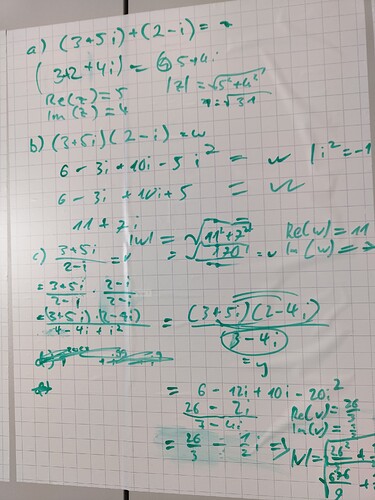 a) (3+5i)+(2-i) = z
(3+2+4i) = 5+4i
Re(z)=5
Im(z)=4
|z| = √5²+4²
= √31
b) (3+5i)(2-i) = w
6 - 3i + 10i - 5i² = w | i²=-1
6 - 3i + 10i + 5 = w
11 + 7i
|w| = √11²+7²
= √170
Re(w) = 11
Im(w) = 7
c) (3+5i)/(2-i) = v
= (3+5i)/(2-i) · (2-i)/(2-i)
= (3+5i)·(2-4i)/(4-4i+i²) = (3+5i)(2-4i)/(3-4i)
= y
= 6 - 12i + 10i - 20i²
(26 - 2i)/(7-4i)
= 26/3 - 1/2 i = v
Re(v) =
Im(v) =
|v| =